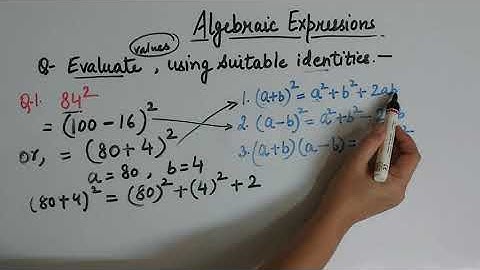 Algebraic Expressions.
values
Q- Evaluate, using suitable identities.—
Q.1. 84²
= (100-16)²
or, = (80+4)²
a = 80, b = 4
(80+4)² = (80)² + (4)² + 2
1. (a+b)² = a² + b² + 2ab
2. (a-b)² = a² + b² - 2 b
3. (a+b)(a-b) =